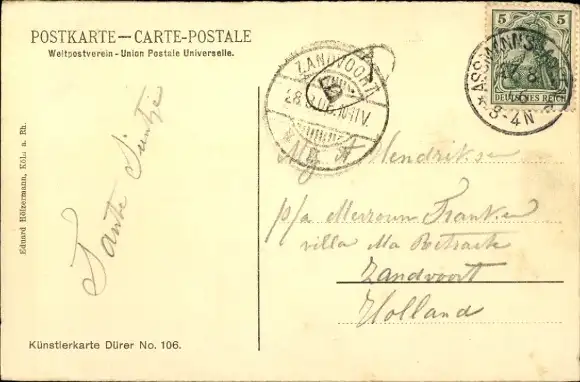 POSTKARTE—CARTE-POSTALE
Weltpostverein - Union Postale Universelle.
Eduard Hölzermann, Köln a. Rh.
Tante
Künstlerkarte Dürer No. 106.
ZANDVOORT
28.
5 5
DEUTSCHES REICH
ASSMANNS
8-4N
A Hendrikse
p/a Mevrouw Franken
villa Ma Retraite
Zandvoort
Holland